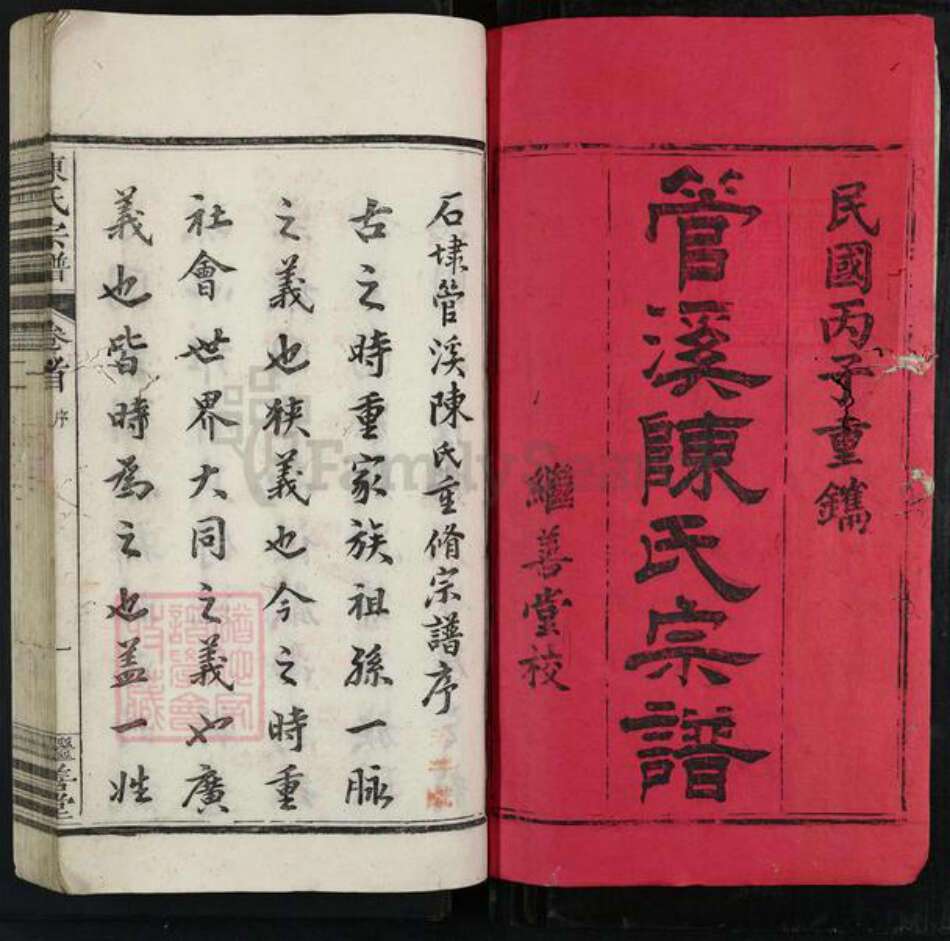 民國丙子重鐫
管溪陳氏宗譜
繼善堂校
石埭管溪陳氏重脩宗譜序
古之時重家族祖孫一脉
之義也狹義也今之時重
社會世界大同之義也廣
義也皆時為之也蓋一姓
陳氏宗譜 卷首 序 一 繼善堂
FamilySearch